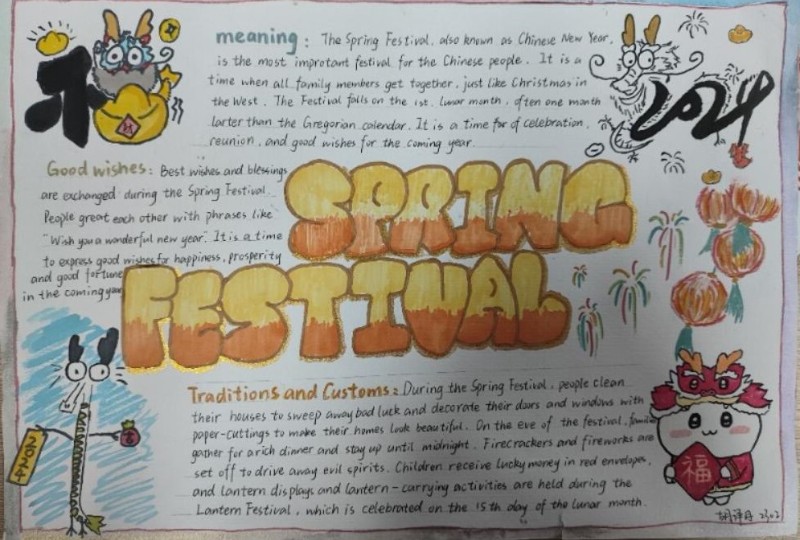 meaning: The Spring Festival, also known as Chinese New Year,
is the most improtant festival for the Chinese people. It is a
time when all family members get together, just like Christmas in
the West. The Festival falls on the 1st. lunar month, often one month
larter than the Gregorian calendar. It is a time for of celebration,
reunion, and good wishes for the coming year.
Good wishes: Best wishes and blessings
are exchanged during the Spring Festival.
People great each other with phrases like
"Wish you a wonderful new year". It is a time
to express good wishes for happiness, prosperity
and good fortune
in the coming year
SPRING
FESTIVAL
Traditions and Customs: During the Spring Festival, people clean
their houses to sweep away bad luck and decorate their doors and windows with
paper-cuttings to make their homes look beautiful. On the eve of the festival, families
gather for a rich dinner and stay up until midnight. Firecrackers and fireworks are
set off to drive away evil spirits. Children receive lucky money in red envelopes,
and lantern displays and lantern-carrying activities are held during the
Lantern Festival, which is celebrated on the 15th day of the lunar month.
2024
福
2302